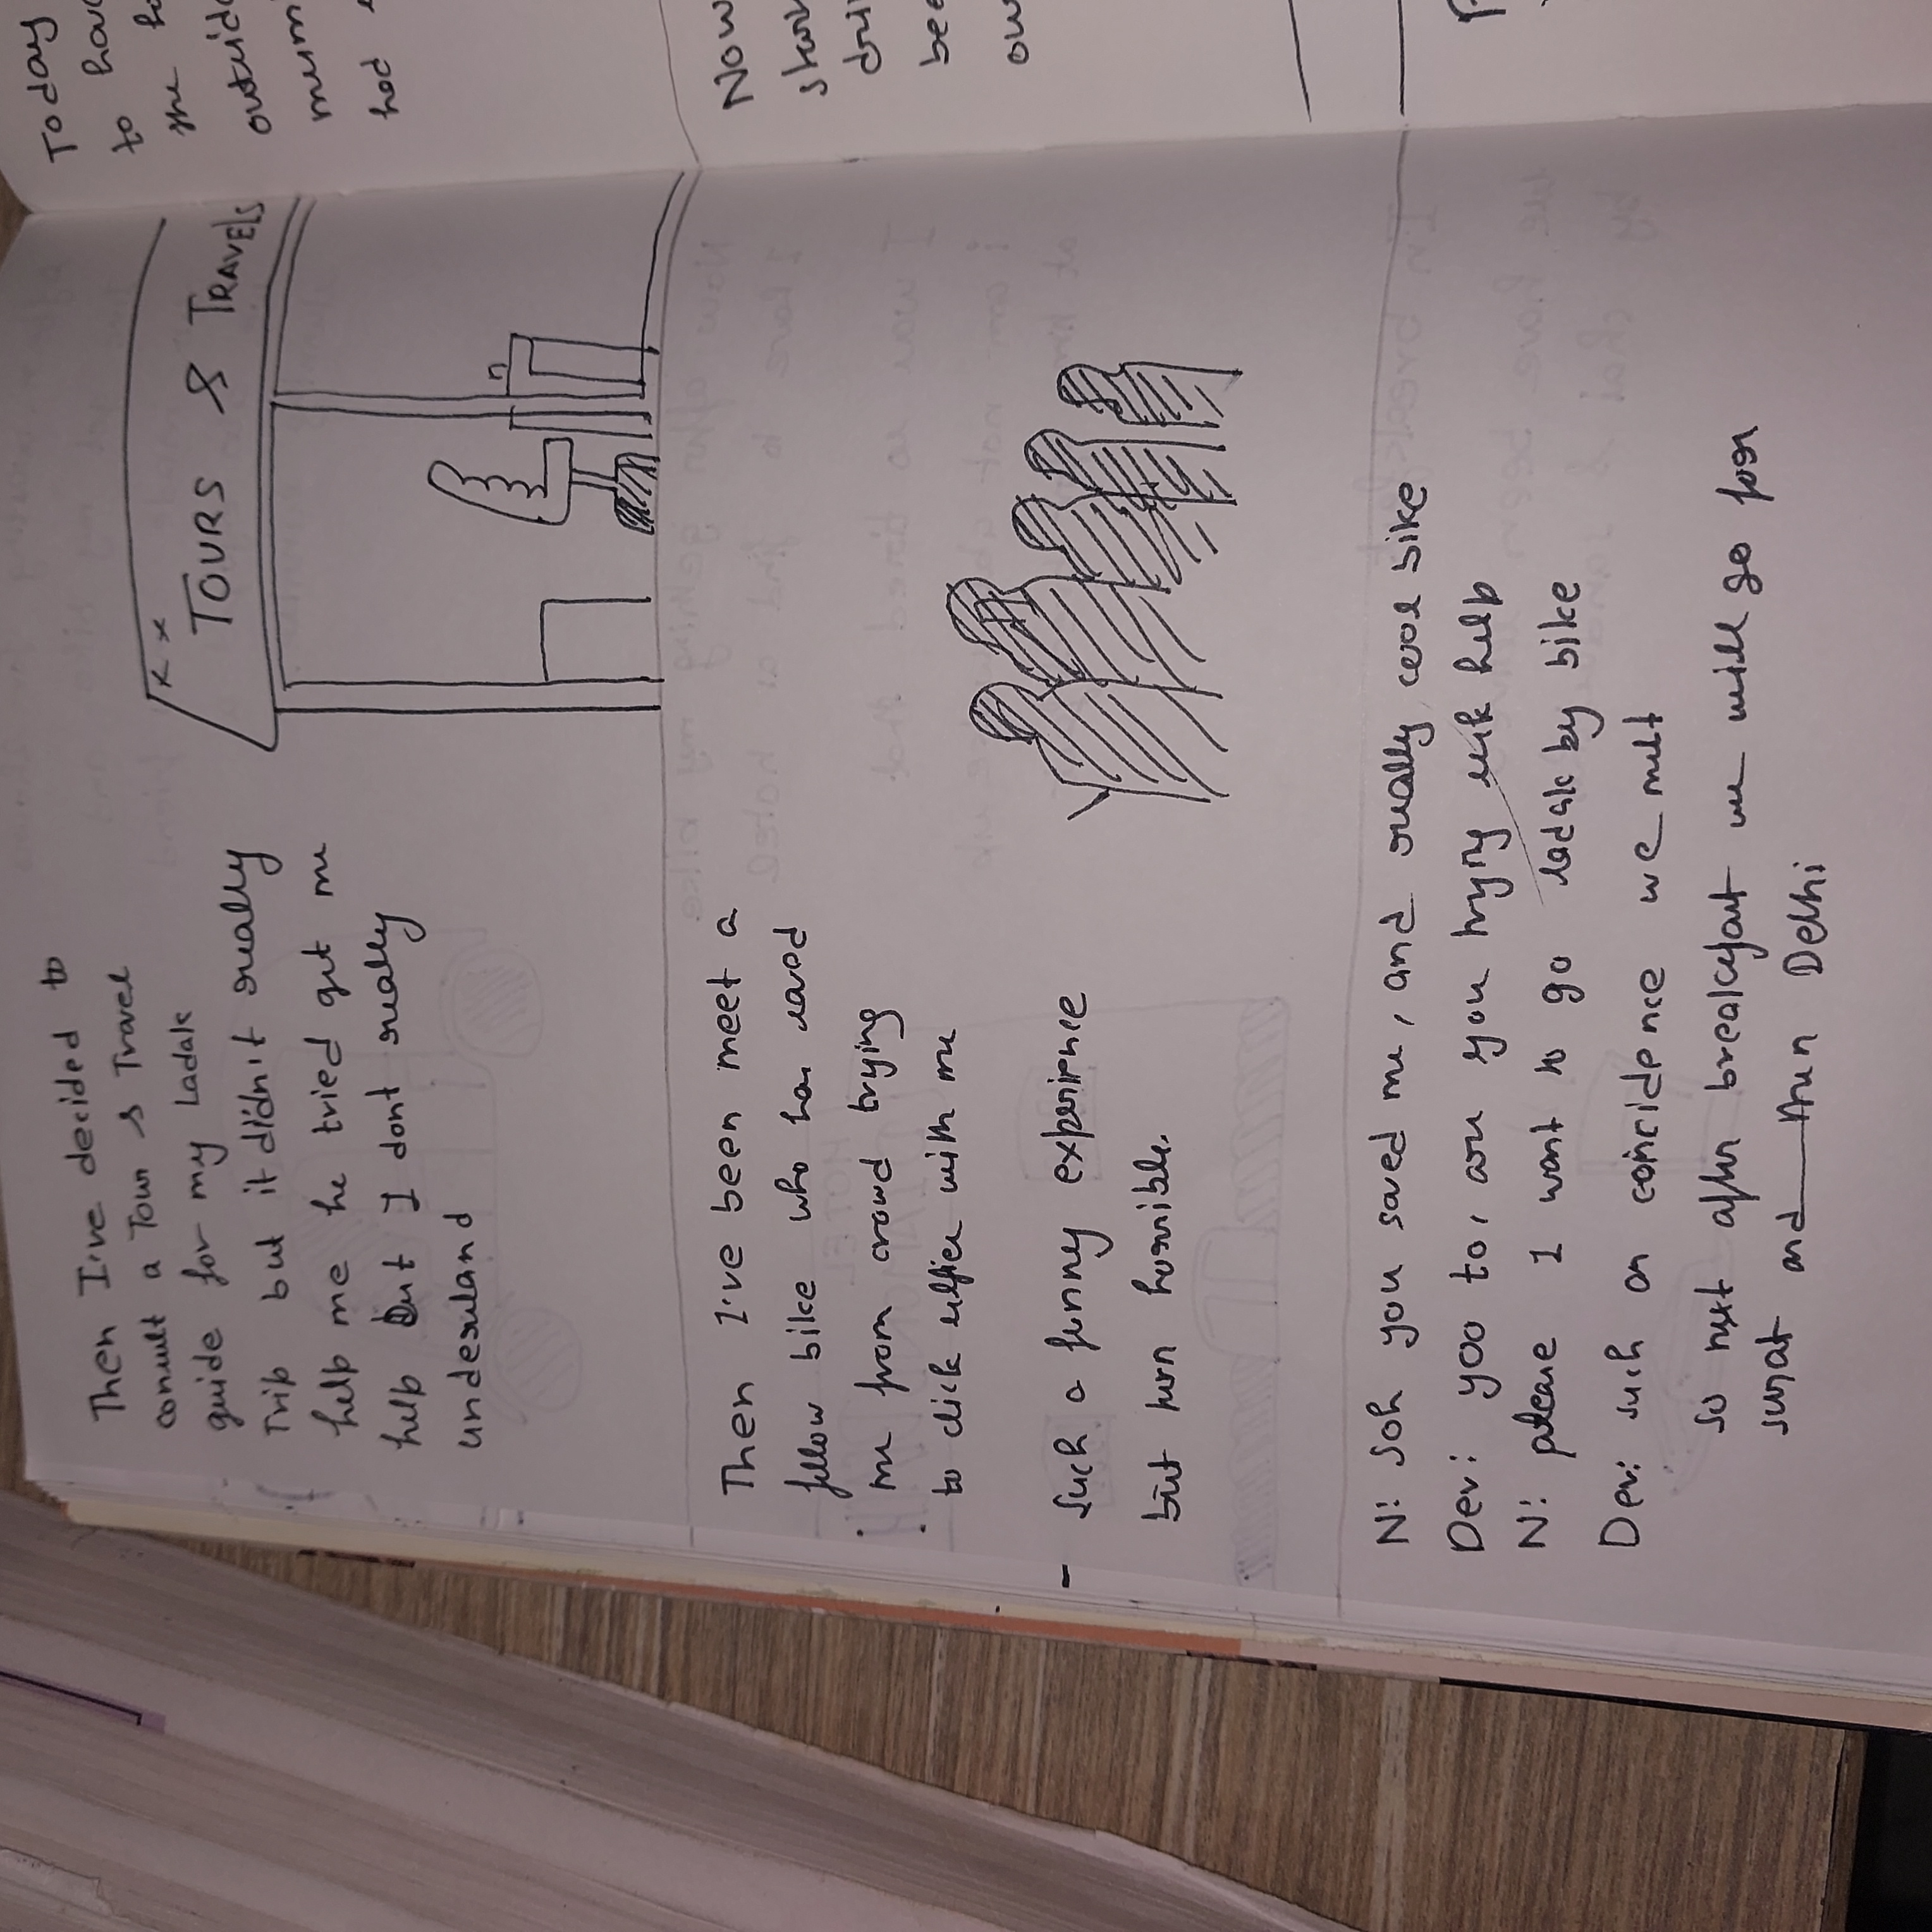 Then I've decided to
consult a Tour & Travel
guide for my Ladak
Trip but it didn't really
help me he tried get me
help but I dont really
understand
x x
TOURS & TRAVELS
Then I've been meet a
fellow bike who has saved
me from crowd trying
to click selfies with me
- Such a funny experience
but turn horrible.
N: Soh you saved me, and really cool bike
Dev: yoo to, are you trying seek help
N: please I want to go ladak by bike
Dev: such an coincidence we meet
so next after breakfast we will go for
surat and then Delhi
Today
to
the
outside
mum
had
Now
start
bee